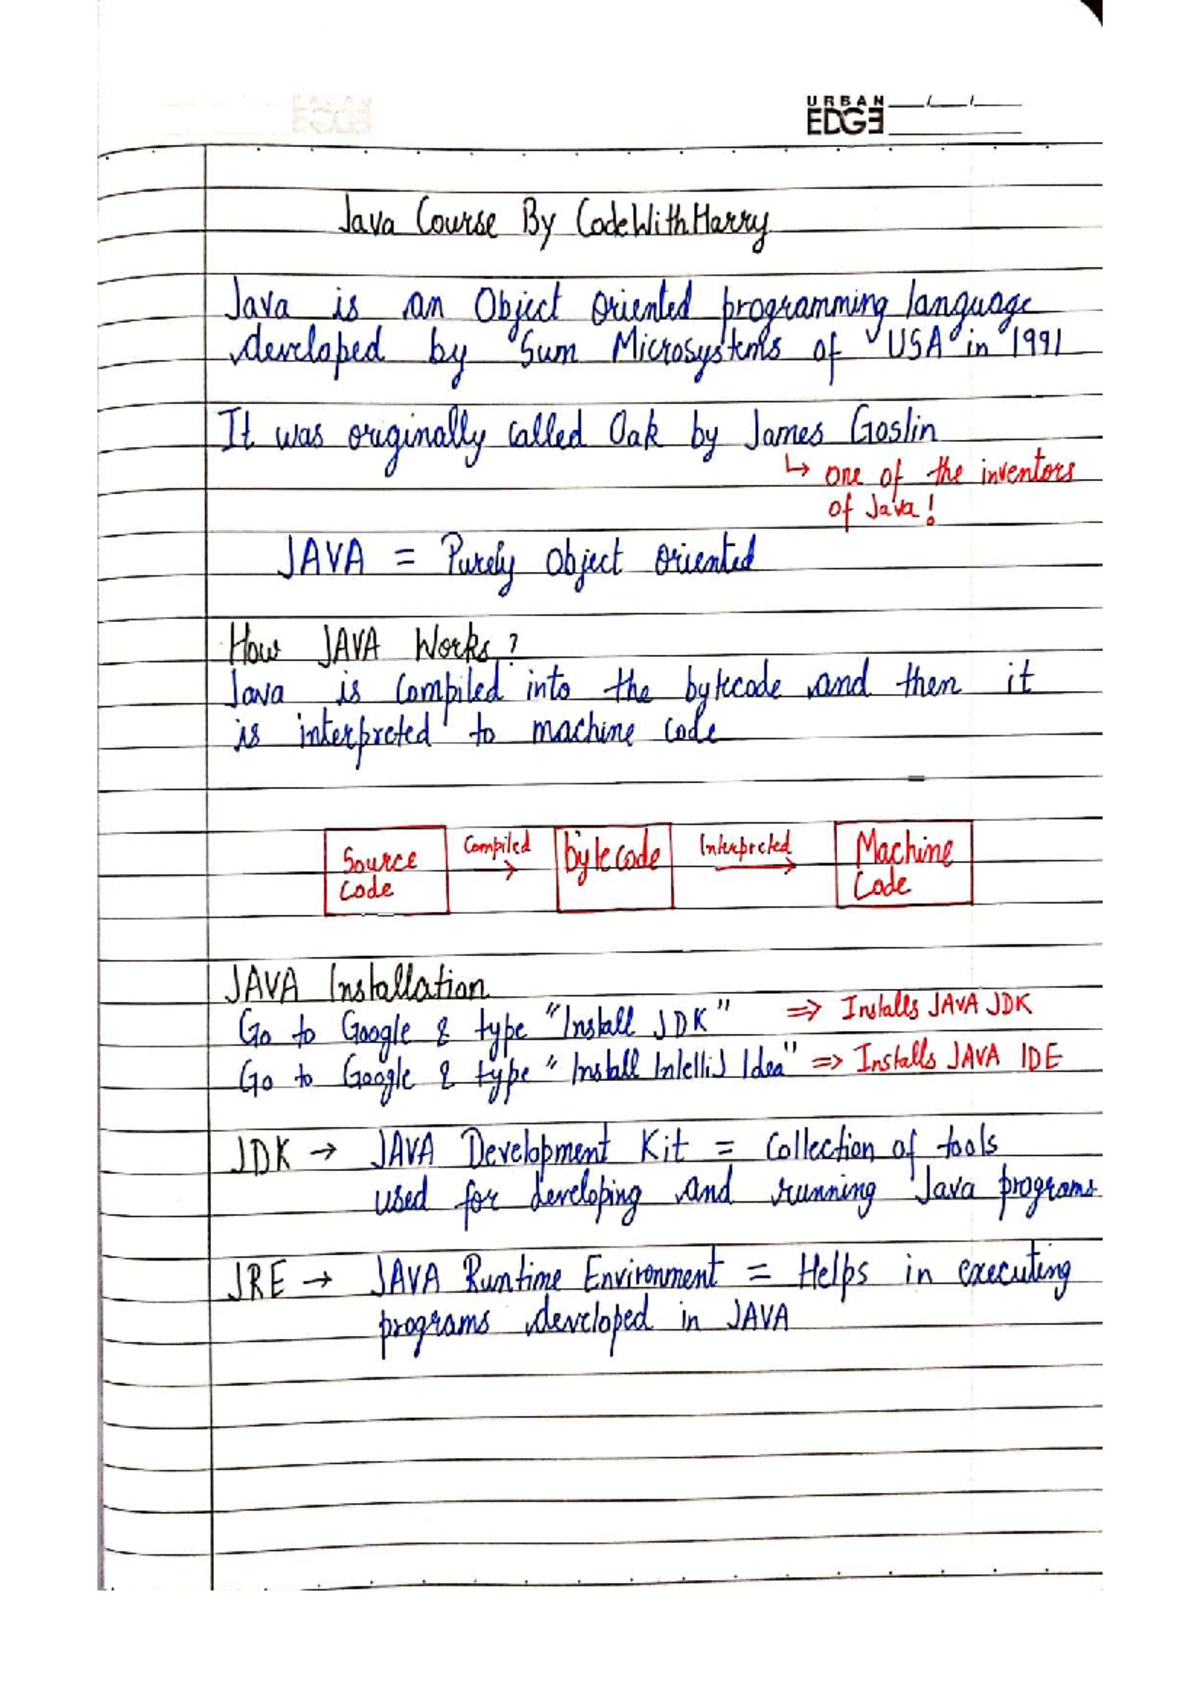 URBAN
EDGE
Java Course By CodeWithHarry
Java is an Object Oriented programming language
developed by Sum Microsystems of USA in 1991
It was originally called Oak by James Goslin
↳ one of the inventors
of Java!
JAVA = Purely Object Oriented
How JAVA Works?
Java is compiled into the bytecode and then it
is interpreted to machine code
Source Code
Compiled →
bytecode
Interpreted →
Machine Code
JAVA Installation
Go to Google & type "Install JDK" ⇒ Installs JAVA JDK
Go to Google & type "Install IntelliJ Idea" ⇒ Installs JAVA IDE
JDK → JAVA Development Kit = Collection of tools
used for developing and running Java programs
JRE → JAVA Runtime Environment = Helps in executing
programs developed in JAVA